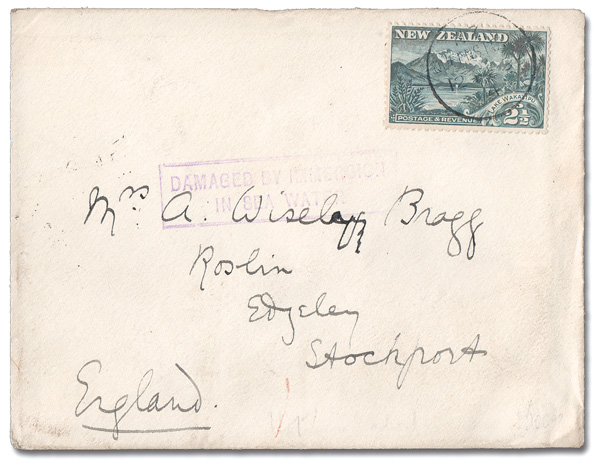 NEW ZEALAND
LAKE WAKATIPU
POSTAGE & REVENUE
2½
DAMAGED BY IMMERSION
IN SEA WATER
Mrs A. Wiseley Bragg
Roslin
Edgeley
Stockport
England.